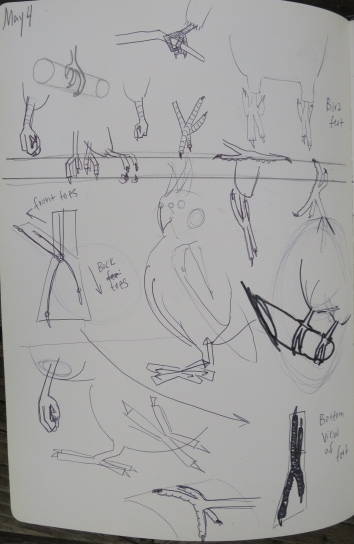 May 4
Bird
feet
front toes
Back
toes
Bottom
View
of feet